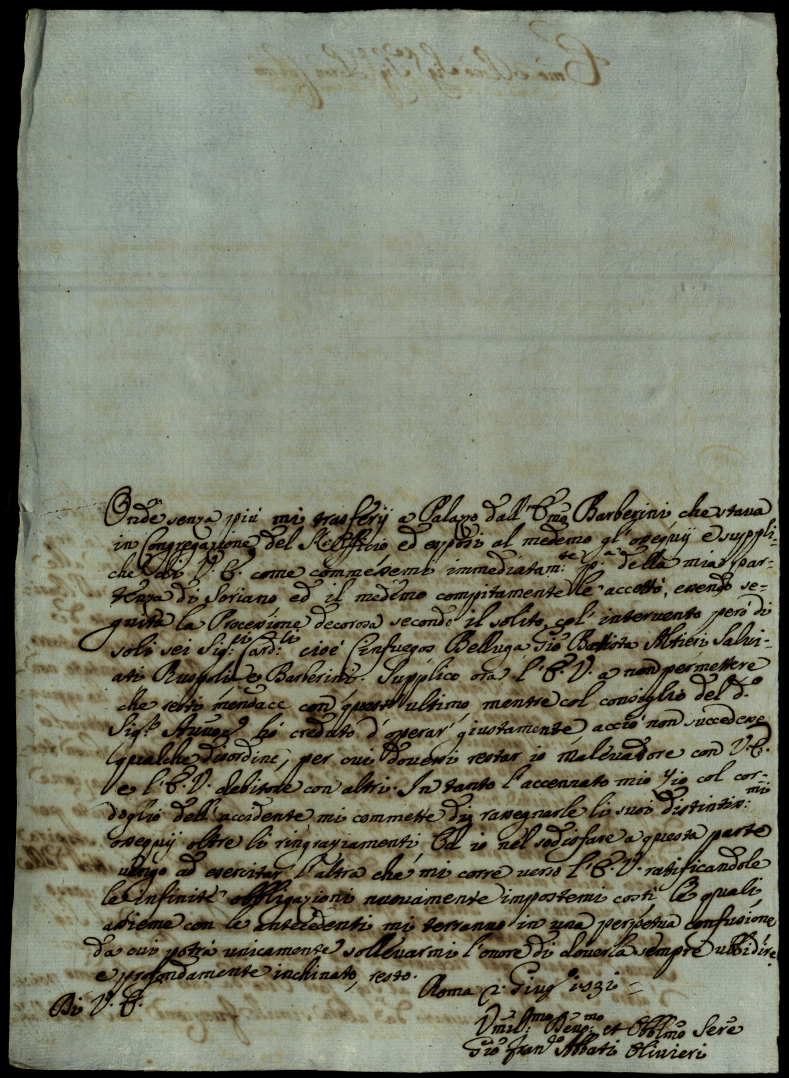 Onde senza più mi trasferij a Palazzo dall' Em̃o Barberini che stava
in Congregazione del S. Offficio ed esposi al medemo gl'ossequij e suppli-
che di V. E. come commessemi immediatam:te p.a della mia par-
tenza di Soriano ed il medemo compitamente le accettò, essendo se-
guita la Processione decorosa secondo il solito, col' intervento però di
soli sei Sig:ri Card:li cioè Cinfuegos Belluga Gio Battista Altieri Salvi-
ati Ruspoli e Barberini. Supplico ora l'E. V. a non permettere
che resti mendace con questo ultimo mentre col consiglio del d.o
Sig.r hò creduto d'operar' giustamente acciò non succedesse
qualche disordine, per cui dovessi restar io malevadore con V. E.
e l'E. V. debitore con altri. In tanto l'accennato mio Zio col cor-
doglio dell'accidente mi commette di rassegnarle li suoi distintiss:mi
ossequij oltre li ringraziamenti, Ed io nel sodisfare a questa parte
vengo ad esercitar l'altra che mi corre verso l'E. V. ratificandole
le infinite obbligazioni nuovamente impostemi costì le quali
assieme con le antecedenti mi terranno in una perpetua confusione
da cui potrà unicamente sollevarmi l'onore di doverla sempre ubbidire
e profondamente inchinato, resto.
Roma 2 Giug.o 1731
Di V. E.
Vmil:mo Devo:mo et Obblm̃o Serv̄e
Gio Fran.co Abbati Olivieri